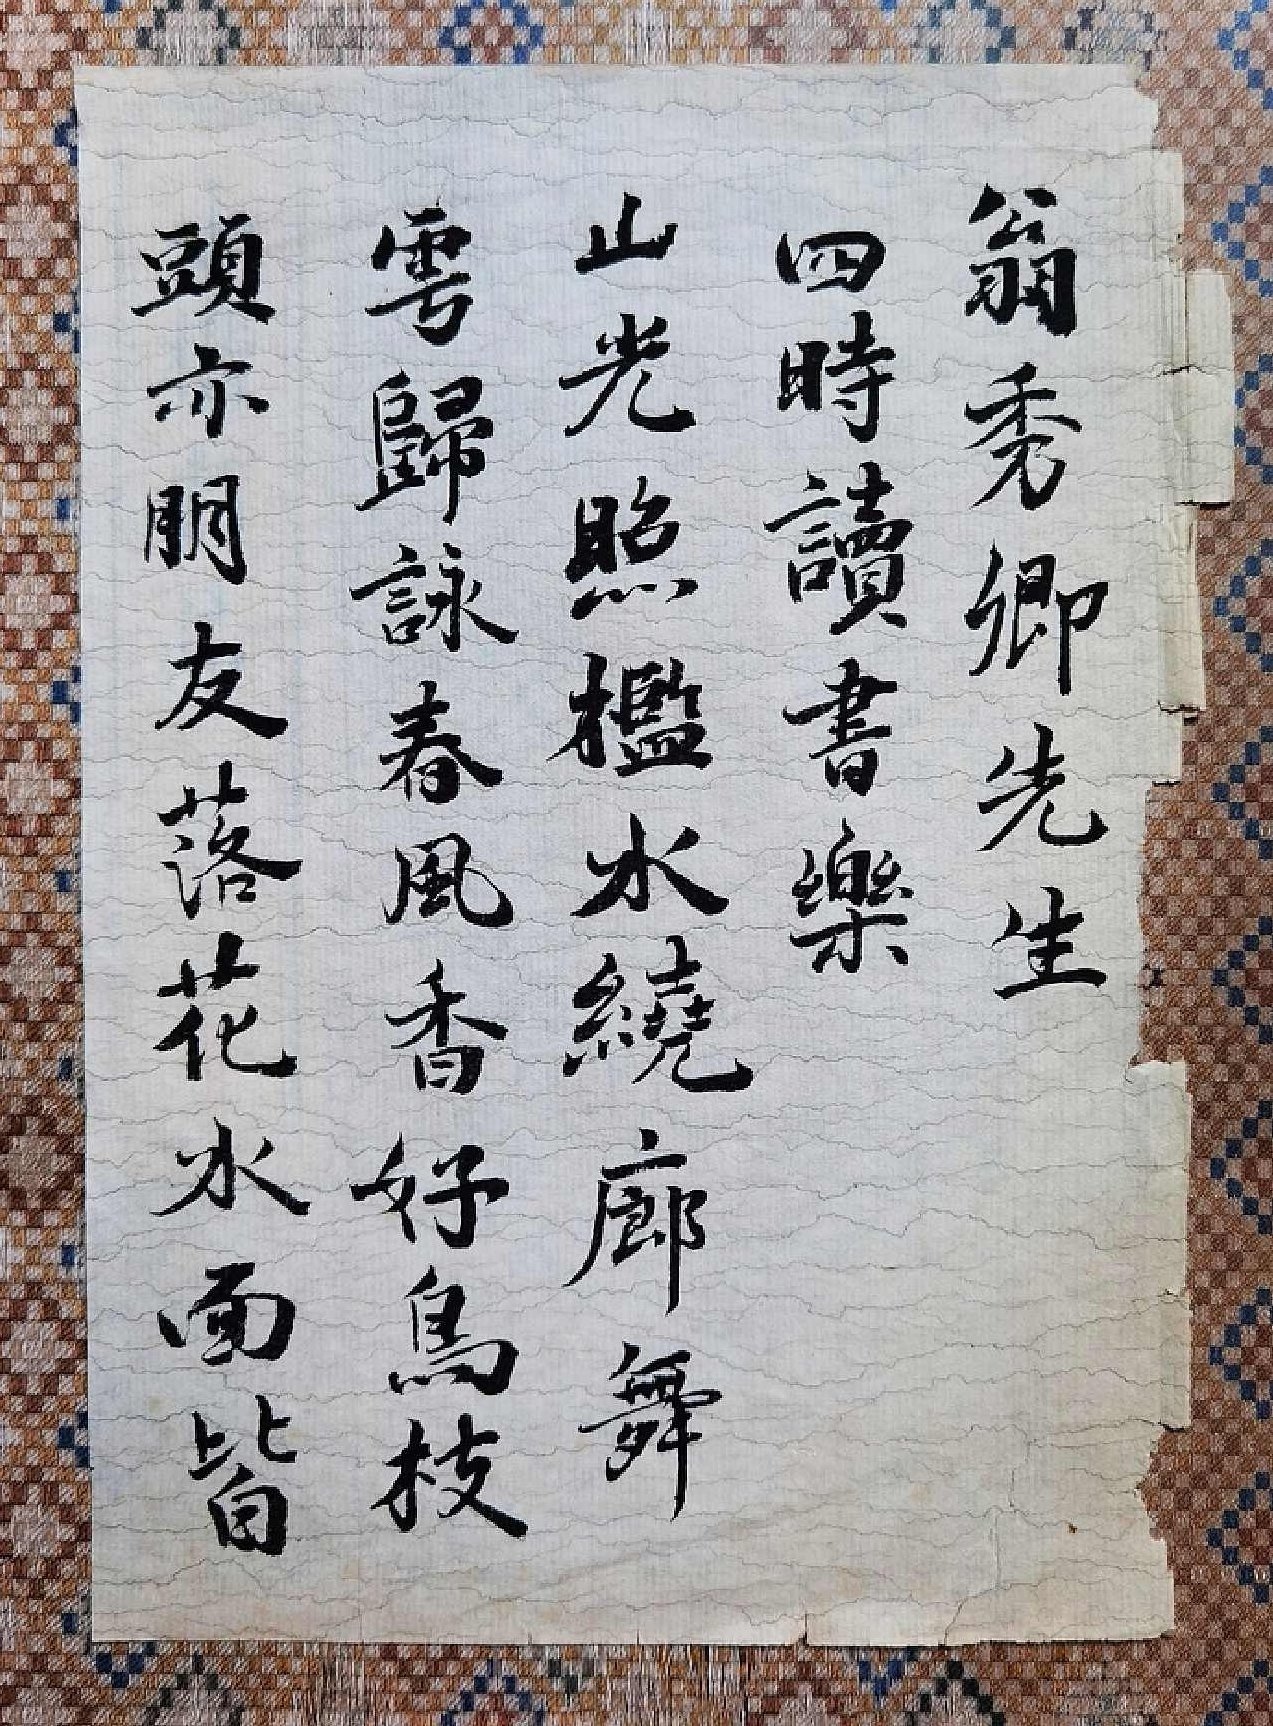 翁秀卿先生
四時讀書樂
山光照檻水繞廊舞
雩歸詠春風香好鳥枝
頭亦朋友落花水面皆